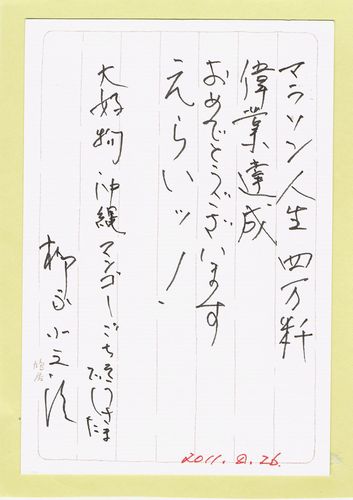 マラソン人生 四万粁
偉業達成
おめでとうございます
えらいッ！
大好物 沖縄マンゴーごちそうさま
でした
柳家小三治
2011. 8. 26.